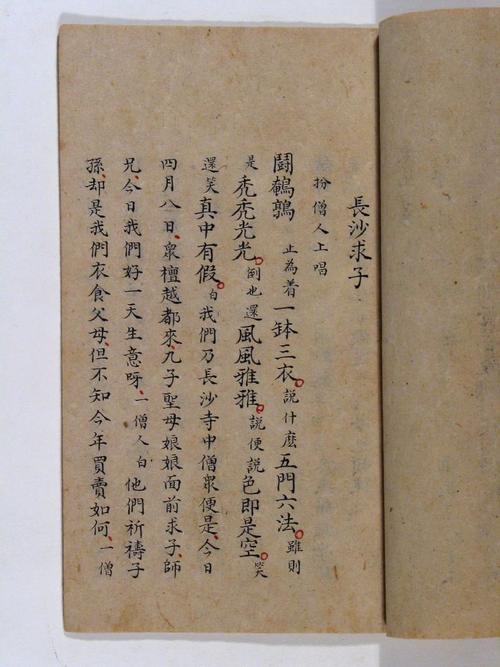 長沙求子
扮僧人上唱
鬪鵪鶉 止為着一缽三衣。說什麽五門六法。雖則
是秃秃光光。倒也還風風雅雅。說便說色即是空。笑
還笑真中有假。白我們乃長沙寺中僧眾便是、今日
四月八日、眾檀越都來、九子聖母娘娘面前求子、師
兄、今日我們好一天生意呀、一僧人白他們祈禱子
孫、却是我們衣食父母、但不知今年買賣如何、一僧